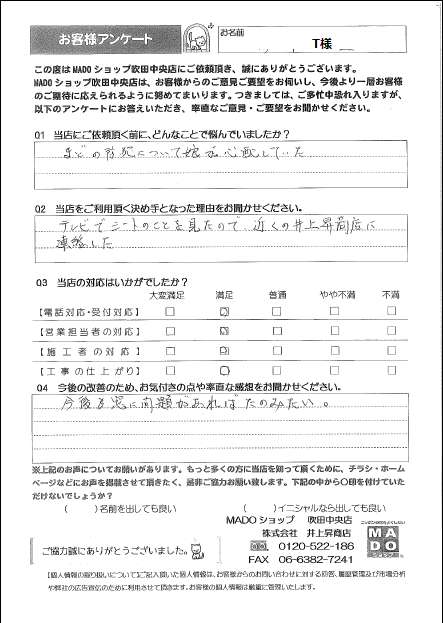 お客様アンケート
お名前
T様
この度はMADOショップ吹田中央店にご依頼頂き、誠にありがとうございます。
MADOショップ吹田中央店は、お客様からのご意見ご要望をお伺いし、今後より一層お客様
のご期待に応えられるように努めてまいります。つきましては、ご多忙中恐れ入りますが、
以下のアンケートにお答えいただき、率直なご意見・ご要望をお聞かせください。
Q1 当店にご依頼頂く前に、どんなことで悩んでいましたか？
まどの防犯について娘が心配していた
Q2 当店をご利用頂く決め手となった理由をお聞かせください。
テレビでシートのことを見たので、近くの井上昇商店に
連絡した
Q3 当店の対応はいかがでしたか？
大変満足 満足 普通 やや不満 不満
【電話対応・受付対応】 □ □ □ □ □
【営業担当者の対応】 □ □ □ □ □
【施工者の対応】 □ □ □ □ □
【工事の仕上がり】 □ □ □ □ □
Q4 今後の改善のため、お気付きの点や率直な感想をお聞かせください。
今後も窓に問題があればたのみたい。
※上記のお声についてお願いがあります。もっと多くの方に当店を知って頂くために、チラシ・ホーム
ページなどにお声を掲載させて頂きたく、是非ご協力お願い致します。下記の中から○印を付けていた
だけないでしょうか？
(　　)名前を出しても良い (　　)イニシャルなら出しても良い
MADOショップ 吹田中央店
株式会社 井上昇商店
0120-522-186
FAX 06-6382-7241
MADO
ショップ
ご協力誠にありがとうございました。
【個人情報の取り扱いについて】ご記入頂いた個人情報は、お客様からのお問い合わせに対する回答、履歴管理及び市場分析
や弊社の広告宣伝のために利用させて頂きます。お客様の個人情報は厳重に管理いたします。